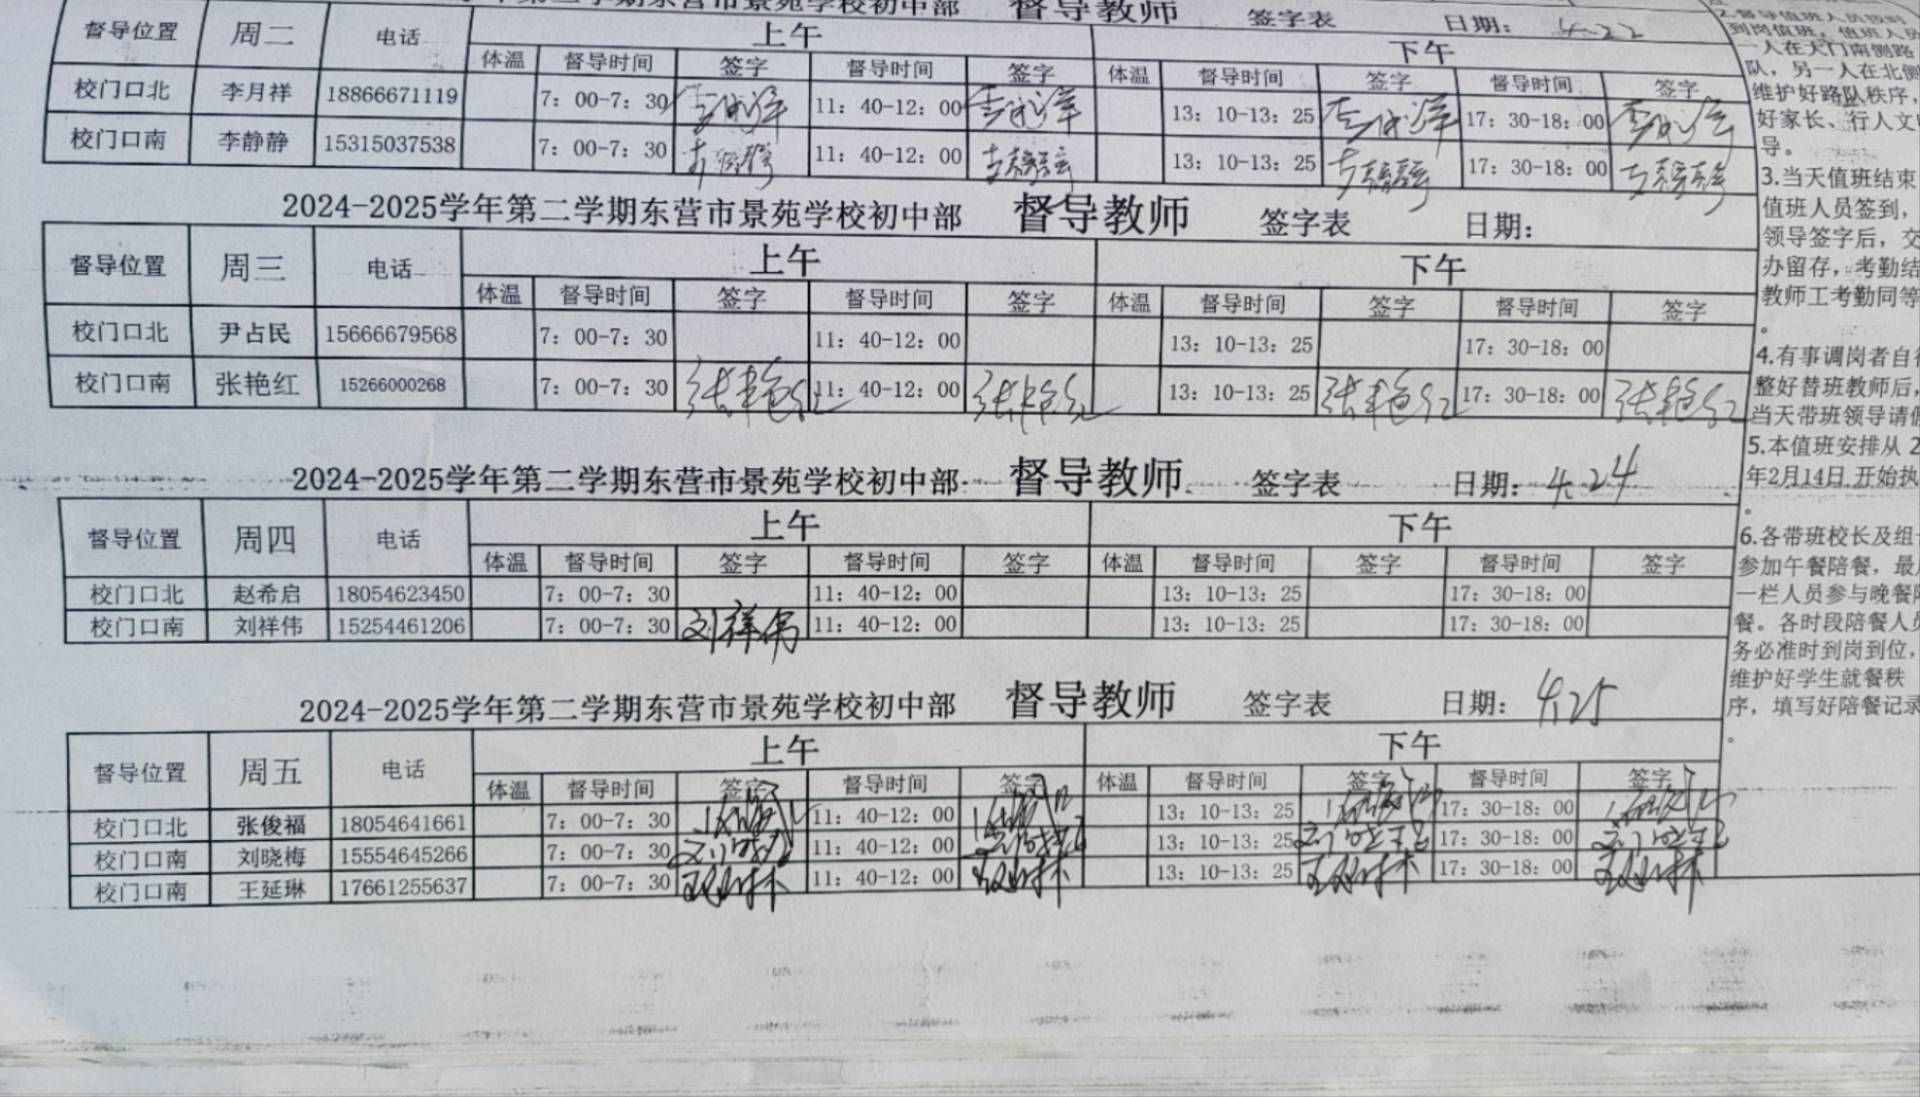 年第二学期东营市景苑学校初中部 督导教师 签字表 日期: 4-22
督导位置 周二 电话 上午 下午
体温 督导时间 签字 督导时间 签字 体温 督导时间 签字 督导时间 签字
校门口北 李月祥 18866671119 7：00-7：30 11：40-12：00 13：10-13：25 17：30-18：00
校门口南 李静静 15315037538 7：00-7：30 11：40-12：00 13：10-13：25 17：30-18：00
2024-2025学年第二学期东营市景苑学校初中部 督导教师 签字表 日期:
督导位置 周三 电话 上午 下午
体温 督导时间 签字 督导时间 签字 体温 督导时间 签字 督导时间 签字
校门口北 尹占民 15666679568 7：00-7：30 11：40-12：00 13：10-13：25 17：30-18：00
校门口南 张艳红 15266000268 7：00-7：30 张艳红 11：40-12：00 张艳红 13：10-13：25 张艳红 17：30-18：00 张艳红
2024-2025学年第二学期东营市景苑学校初中部 督导教师 签字表 日期: 4.24
督导位置 周四 电话 上午 下午
体温 督导时间 签字 督导时间 签字 体温 督导时间 签字 督导时间 签字
校门口北 赵希启 18054623450 7：00-7：30 11：40-12：00 13：10-13：25 17：30-18：00
校门口南 刘祥伟 15254461206 7：00-7：30 刘祥伟 11：40-12：00 13：10-13：25 17：30-18：00
2024-2025学年第二学期东营市景苑学校初中部 督导教师 签字表 日期: 4.25
督导位置 周五 电话 上午 下午
体温 督导时间 签字 督导时间 签字 体温 督导时间 签字 督导时间 签字
校门口北 张俊福 18054641661 7：00-7：30 11：40-12：00 13：10-13：25 17：30-18：00
校门口南 刘晓梅 15554645266 7：00-7：30 11：40-12：00 13：10-13：25 17：30-18：00
校门口南 王延琳 17661255637 7：00-7：30 王延琳 11：40-12：00 王延琳 13：10-13：25 王延琳 17：30-18：00 王延琳
2.督导值班人员按时
到岗值班，值班人员
一人在大门南侧路
队，另一人在北侧
维护好路队秩序，
好家长、行人文明
导。
3.当天值班结束
值班人员签到，
领导签字后，交
办留存，考勤结
教师工考勤同等
。
4.有事调岗者自行
整好替班教师后，
当天带班领导请假
5.本值班安排从 2
年2月14日 开始执
。
6.各带班校长及组
参加午餐陪餐，最
一栏人员参与晚餐陪
餐。各时段陪餐人员
务必准时到岗到位，
维护好学生就餐秩
序，填写好陪餐记录
。